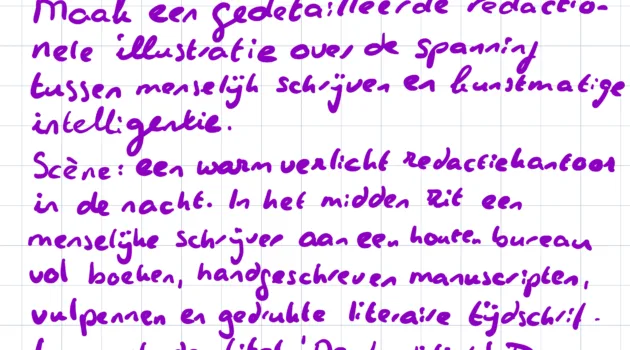 Maak een gedetailleerde redactio-
nele illustratie over de spanning
tussen menselijk schrijven en kunstmatige
intelligentie.
Scène: een warm verlicht redactiekantoor
in de nacht. In het midden zit een
menselijke schrijver aan een houten bureau
vol boeken, handgeschreven manuscripten,
vulpennen en gedrukte literaire tijdschrif-